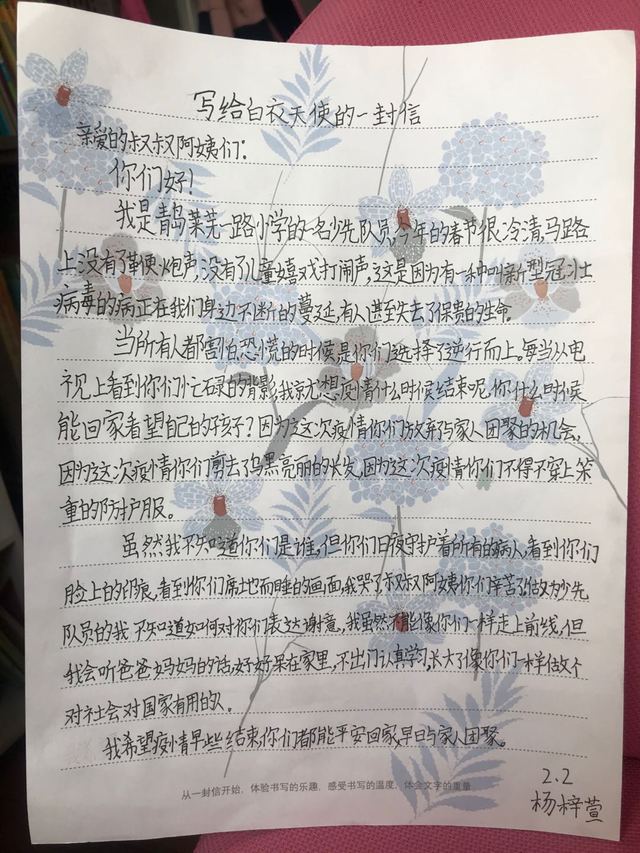 写给白衣天使的一封信
亲爱的叔叔阿姨们：
你们好！
我是青岛莱芜一路小学的一名少先队员，今年的春节很冷清，马路
上没有了鞭炮声，没有了儿童嬉戏打闹声，这是因为有一种叫新型冠状
病毒的病正在我们身边不断的蔓延，有人甚至失去了保贵的生命。
当所有人都害怕、恐慌的时候是你们选择了逆行而上。每当从电
视上看到你们忙碌的背影，我就想疫情什么时候结束呢，你什么时候
能回家看望自己的孩子？因为这次疫情你们放弃与家人团聚的机会，
因为这次疫情你们剪去了乌黑亮丽的长发，因为这次疫情你们不得不穿上笨
重的防护服。
虽然我不知道你们是谁，但你们日夜守护着所有的病人，看到你们
脸上的印痕，看到你们席地而睡的画面，我哭了，叔叔阿姨你们辛苦了，做为少先
队员的我不知道如何对你们表达谢意，我虽然不能像你们一样走上前线，但
我会听爸爸妈妈的话，好好呆在家里，不出门认真学习，长大了像你们一样做个
对社会对国家有用的人。
我希望疫情早些结束，你们都能平安回家，早日与家人团聚。
2.2
杨梓萱
从一封信开始，体验书写的乐趣，感受书写的温度，体会文字的重量